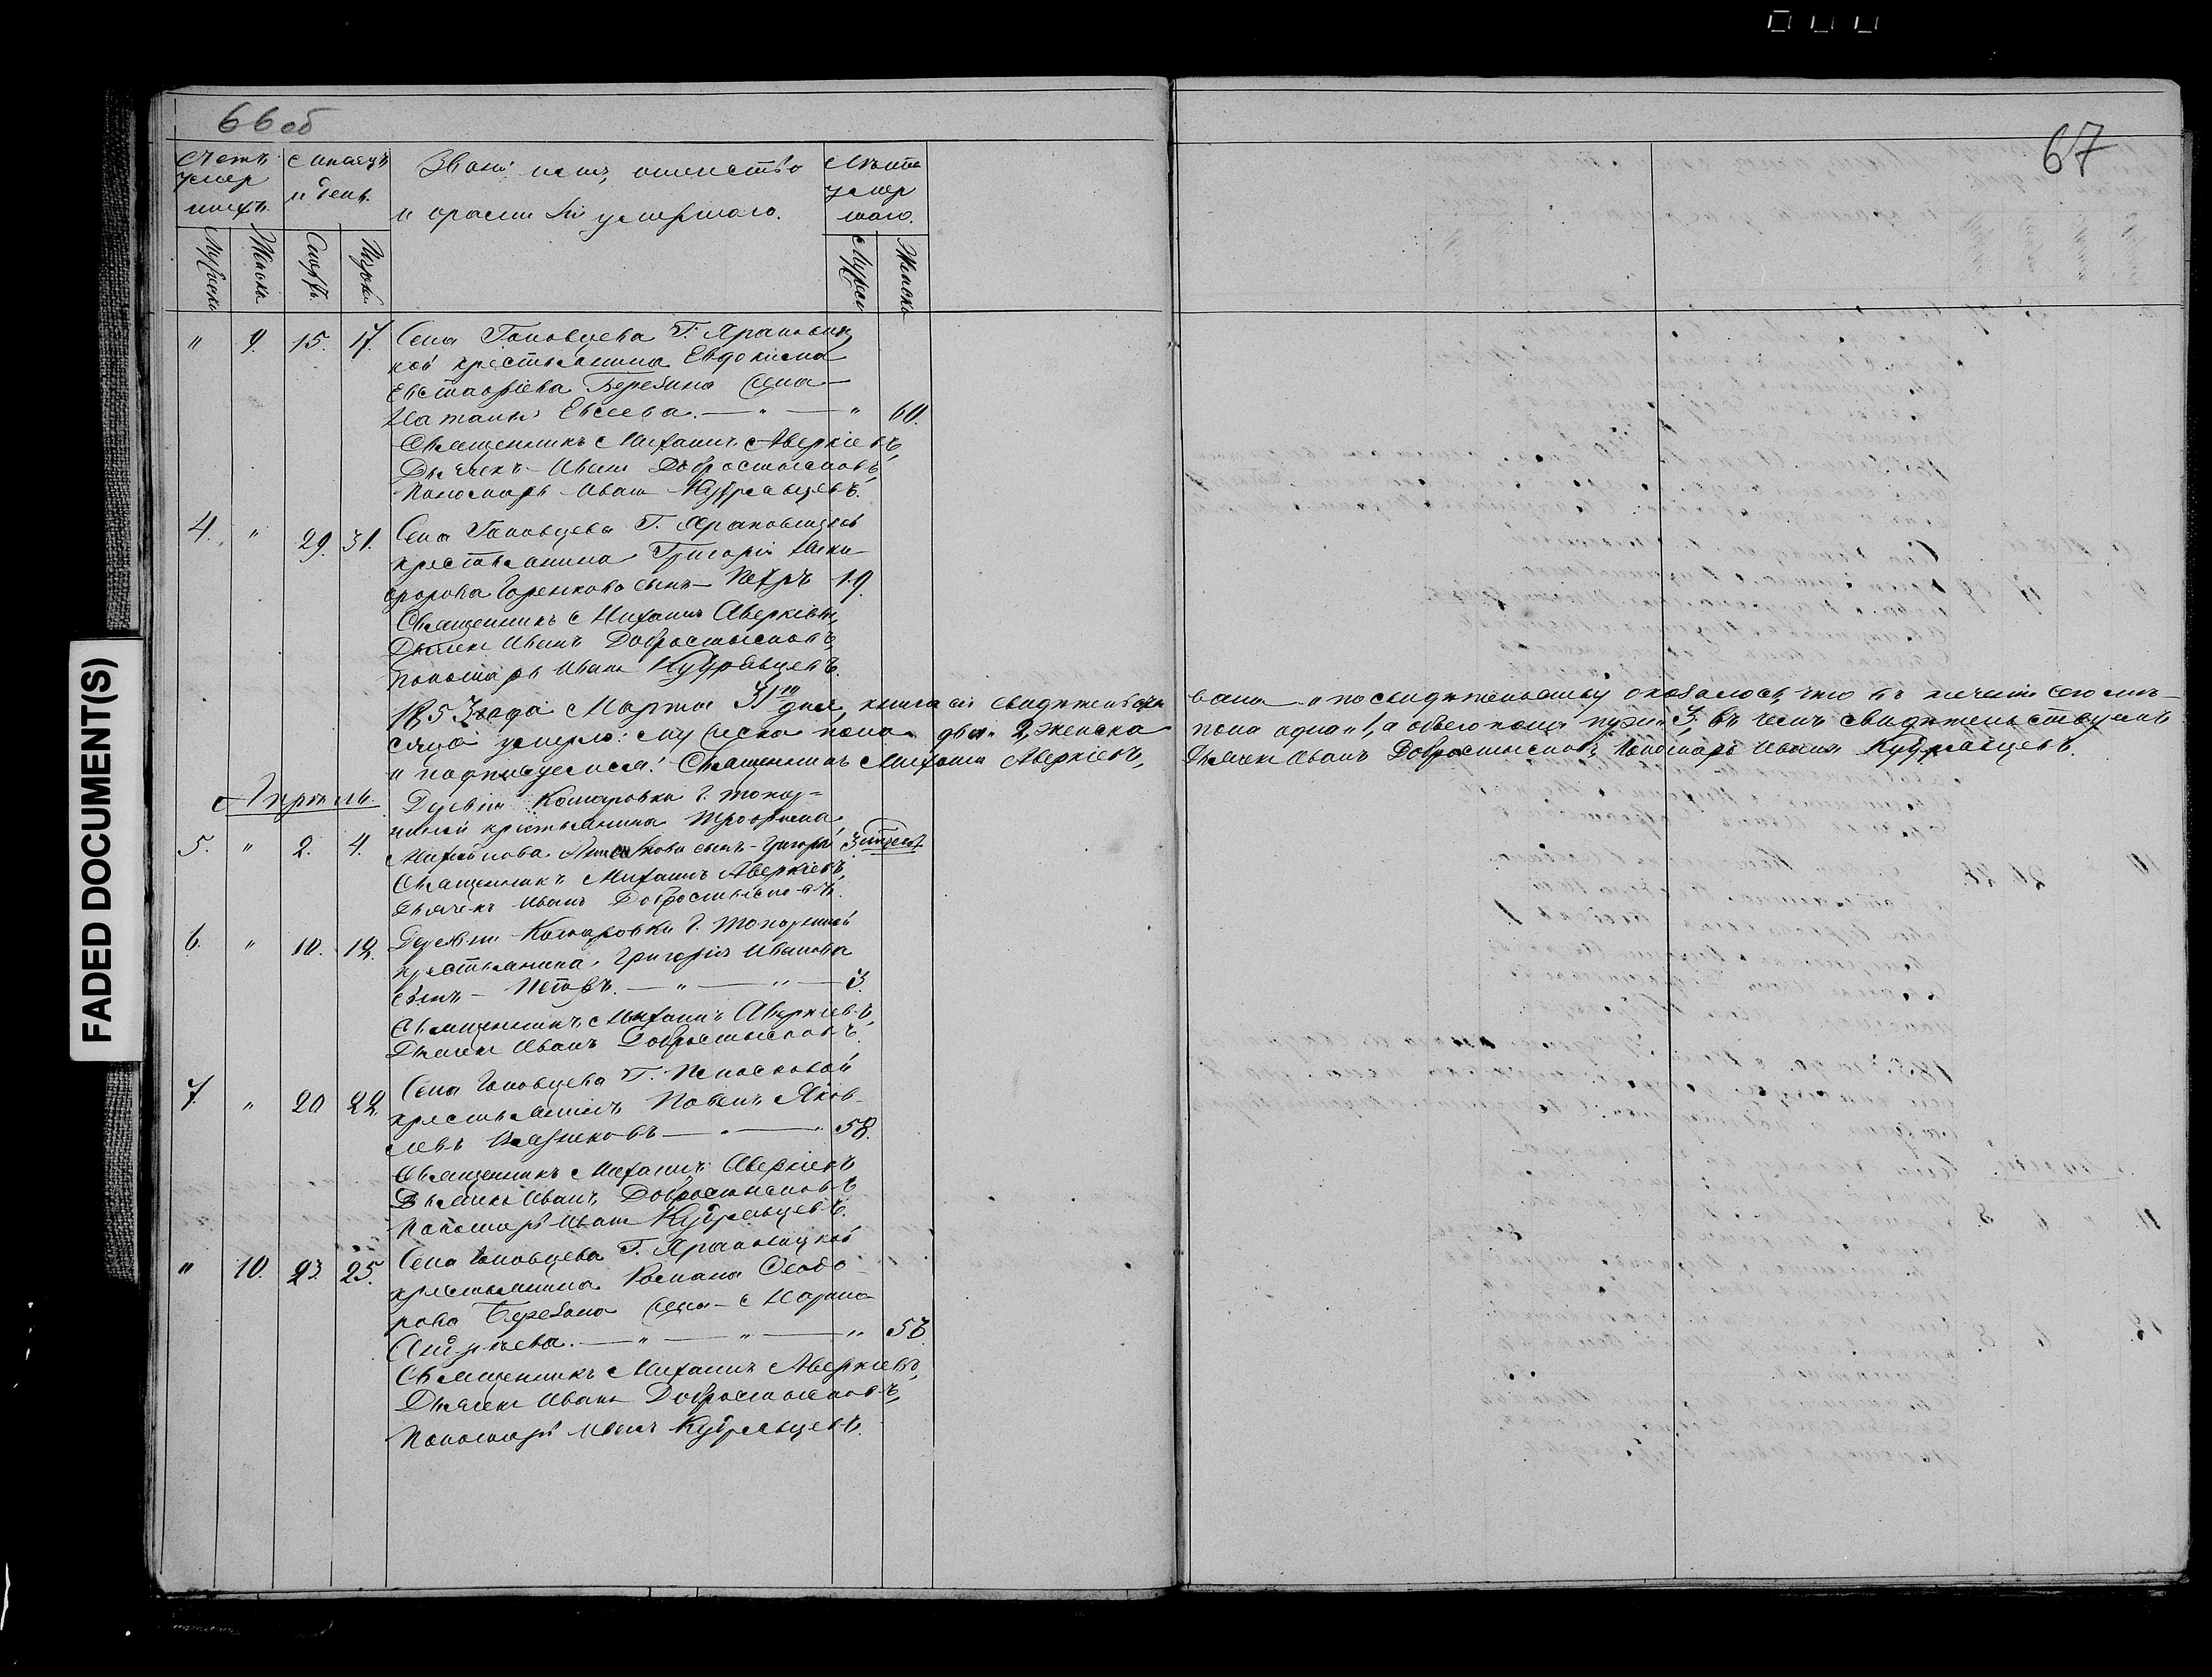 66 об
67
FADED DOCUMENT(S)
Счетъ умер шихъ.
Мѣсяцъ и день.
Званіе, имя, отчество
и фамилія умершаго.
Лѣта умер шаго.
Мужеска
Женска
Смерть
Погреб.
Мужеск
Женска
" 9. 15. 17. Села Головцева Г.
кой крестьянина Евдокима
Евстафіева Березина жена
Наталья Евсеева. — " — " 60.
Священникъ Михаилъ Аверкіевъ,
Дьячекъ Иванъ Добросмысловъ,
Пономарь Иванъ Кудрявцевъ.
4. " 29. 31. Села Головцева Г.
крестьянина Григорія Ники
форова сынъ — Петръ 19.
Священникъ Михаилъ Аверкіевъ,
Дьячекъ Иванъ Добросмысловъ,
Пономарь Иванъ Кудрявцевъ.
1853 года Марта 31го дня, книга сія свидѣтельство
вана и по свидѣтельству оказалось, что въ теченіи сего мѣ-
сяца умерло: мужеска пола два " 2, женска
пола одна " 1, а обоего пола " 3, въ чемъ свидѣтельствуемъ
и подписуемся: Священникъ Михаилъ Аверкіевъ,
Дьячекъ Иванъ Добросмысловъ, Пономарь Иванъ Кудрявцевъ.
Апрѣль.
Деревни Комаровки Г.
крестьянина Трофима
5. " 2. 4. Михайлова сынъ — Григорій
Священникъ Михаилъ Аверкіевъ,
Дьячекъ Иванъ Добросмысловъ.
6. " 10. 12. Деревни Комаровки Г.
крестьянина Григорія Иванова
сынъ — Петръ. — " — " — 3.
Священникъ Михаилъ Аверкіевъ,
Дьячекъ Иванъ Добросмысловъ.
7. " 20 22. Села Головцева Г.
крестьянинъ Павелъ Яков-
левъ — " — " 58.
Священникъ Михаилъ Аверкіевъ
Дьячекъ Иванъ Добросмысловъ
Пономарь Иванъ Кудрявцевъ.
" 10. 23. 25. Села Головцева Г.
крестьянина Романа Ѳеодо
рова Березина жена — Марина
— " — " — "
Священникъ Михаилъ Аверкіевъ,
Дьячекъ Иванъ Добросмысловъ,
Пономарь Иванъ Кудрявцевъ.